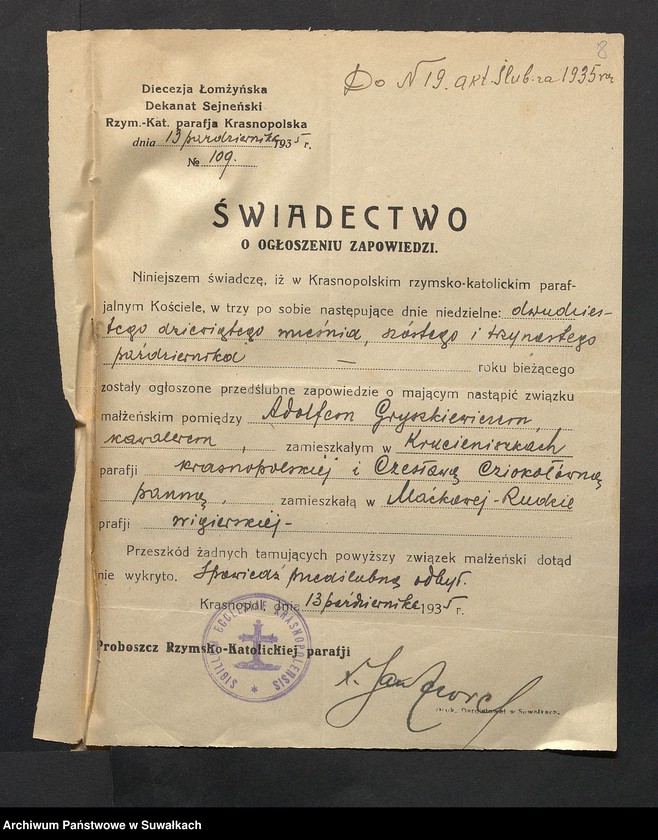 8
Do N 19. akt. Ślub. za 1935
Diecezja Łomżyńska
Dekanat Sejneński
Rzym.-Kat. parafja Krasnopolska
dnia 13 października 1935 r.
№ 109.
ŚWIADECTWO
O OGŁOSZENIU ZAPOWIEDZI.
Niniejszem świadczę, iż w Krasnopolskim rzymsko-katolickim paraf-
jalnym Kościele, w trzy po sobie następujące dnie niedzielne: dwudzies-
tego dziewiątego września, szóstego i trzynastego
października — roku bieżącego
zostały ogłoszone przedślubne zapowiedzie o mającym nastąpić związku
małżeńskim pomiędzy Adolfem Gryszkiewiczem,
kawalerem, zamieszkałym w Krucieniszkach
parafji krasnopolskiej i Czesławą Cziokołówną
panną, zamieszkałą w Maćkowej-Rudzie
prafji wigierskiej-
Przeszkód żadnych tamujących powyższy związek małżeński dotąd
nie wykryto. Spowiedź przedślubną odbył.
Krasnopol, dnia 13 października 1935 r.
Proboszcz Rzymsko-Katolickiej parafji
SIGILLUM ECCLESIAE KRASNOPOLENSIS
x. Jan
Druk. w Suwałkach.
Archiwum Państwowe w Suwałkach